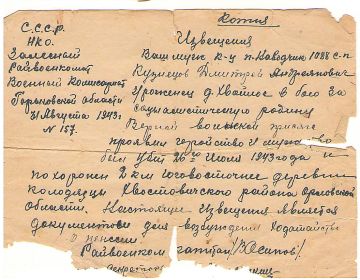 Копия
С.С.С.Р.
НКО.
Райвоенкомат
Военный Комиссариат
Горьковской области
31 Августа 1943г
N 157.
Извещения
Ваш муж к-ц п. Наводчик 1088 с-п
Кузнецов Дмитрий
Уроженец д. в бою за
социалистическую родину
Верной воинской присяге
проявив геройство и мужество
был убит 26го Июля 1943 года и
похоронен 2 км юговосточнее деревни
колодези Хвостовичского района Орловской
Области. Настоящее Извещения является
документом для возбуждения ходатайств
о пенсии
Райвоенком капитан /Осипов/